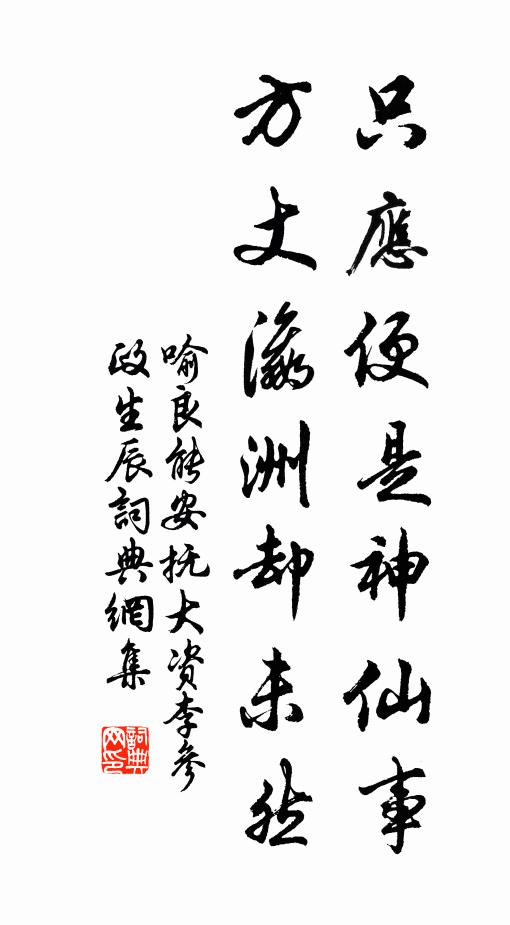 只應便是神仙事
方丈瀛洲却未然
喻良能安抚大资李參
政生辰詞典網集
詞典
网印